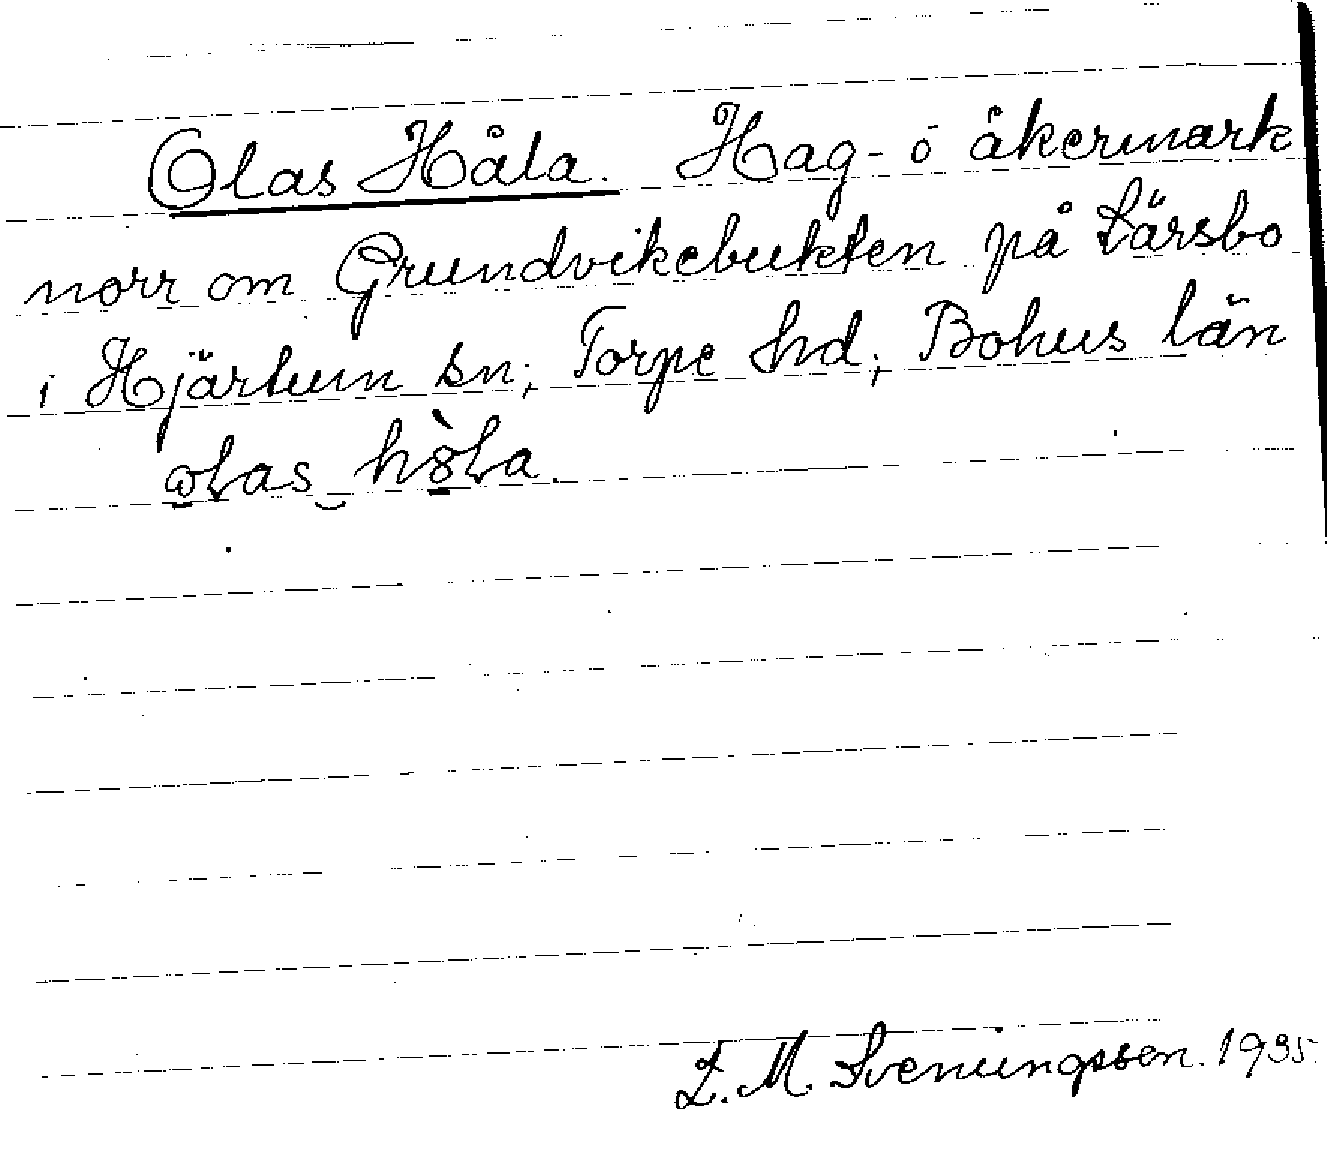 Olas Håla. Hag- o åkermark
norr om Grundvikebukten på Lärsbo
i Hjärtum sn; Torpe hd; Bohus län
L. M. Svenungsson. 1935.